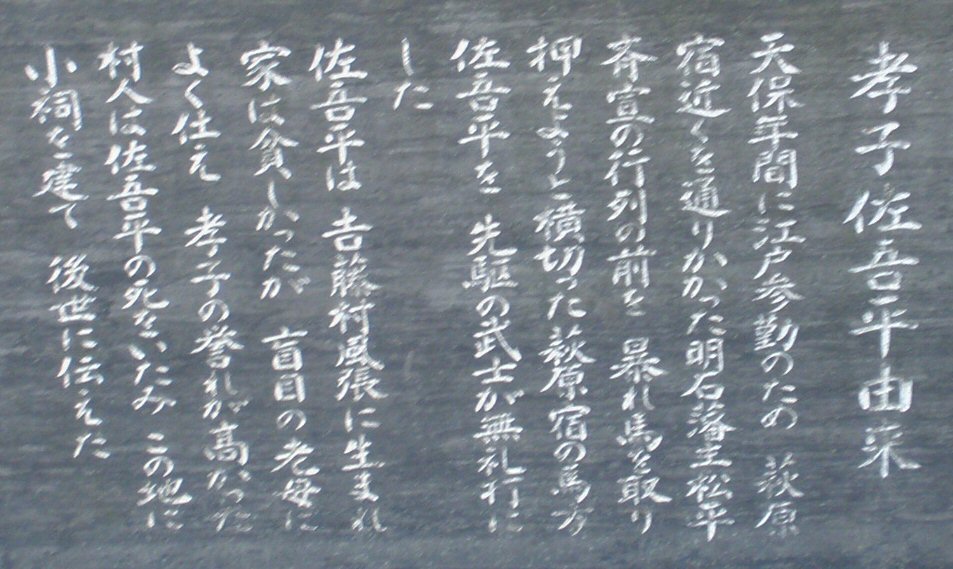 孝子佐吾平由来
天保年間に江戸参勤のため 萩原
宿近くを通りかかった明石藩主松平
斉宣の行列の前を 暴れ馬を取り
押えようと横切った萩原宿の馬方
佐吾平を 先駆の武士が無礼打に
した
佐吾平は 吉藤村風張に生まれ
家は貧しかったが 盲目の老母に
よく仕え 孝子の誉れが高かった
村人は佐吾平の死をいたみ この地に
小祠を建て 後世に伝えた